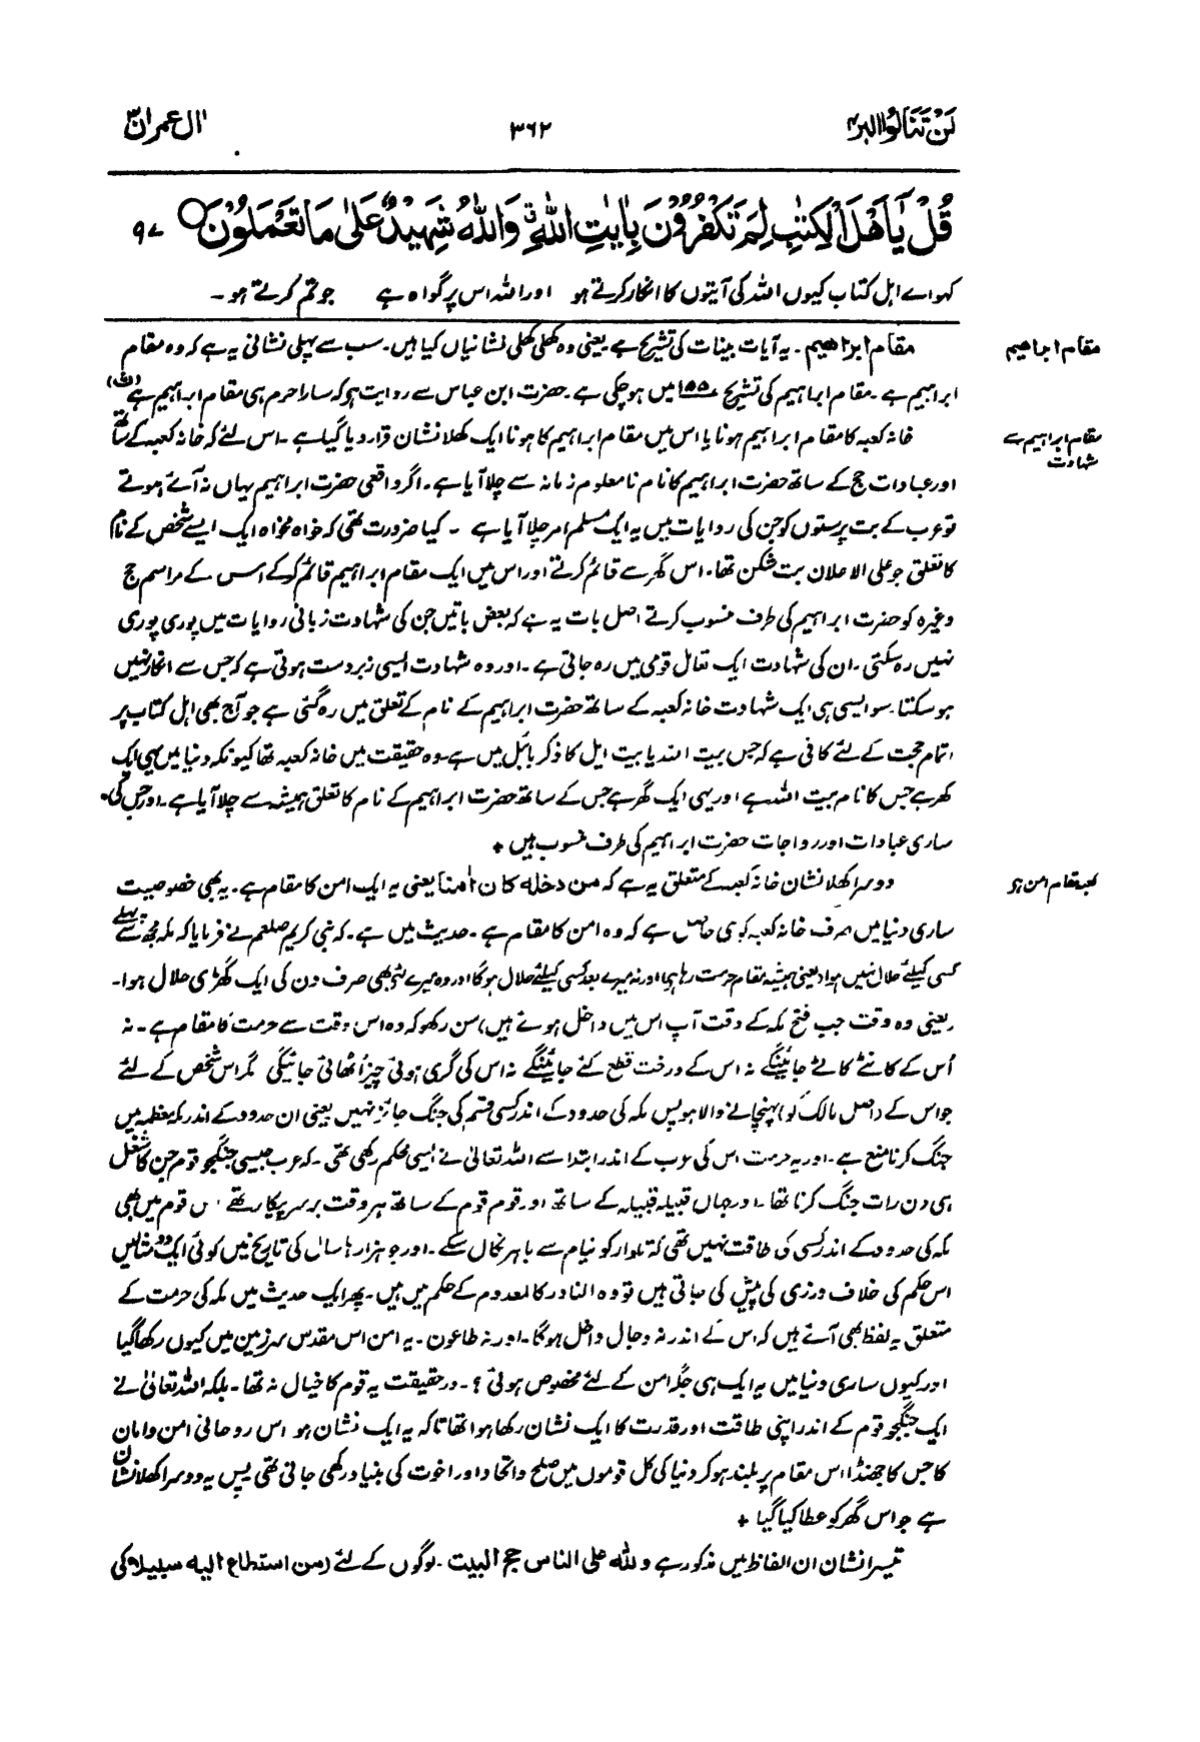 لَنْ تَنَالُوا البر ٤
٣٦٢
اٰل عمران ٣
قُلْ يٰۤاَهْلَ الْكِتٰبِ لِمَ تَكْفُرُوْنَ بِاٰيٰتِ اللّٰهِ ۖ وَاللّٰهُ شَهِيْدٌ عَلٰى مَا تَعْمَلُوْنَ ○ ٩٧
کہو اے اہل کتاب کیوں اللہ کی آیتوں کا انکار کرتے ہو اور اللہ اس پر گواہ ہے جو تم کرتے ہو ۔
مقام ابراھیم
مقام ابراھیم ۔ یہ آیات بینات کی تشریح ہے یعنی وہ کھلی کھلی نشانیاں کیا ہیں ۔ سب سے پہلی نشانی یہ ہے کہ وہ مقام
ابراہیم ہے ۔ مقام ابراہیم کی تشریح ۱۵۵ میں ہو چکی ہے ۔ حضرت ابن عباس سے روایت ہو کہ سارا حرم ہی مقام ابراہیم ہے (ث)
مقام ابراہیم سے
شہادت
خانہ کعبہ کا مقام ابراہیم ہونا یا اس میں مقام ابراہیم کا ہونا ایک کھلا نشان قرار دیا گیا ہے ۔ اس لئے کہ خانہ کعبہ کے ساتھ
اور عبادات حج کے ساتھ حضرت ابراہیم کا نام نامعلوم زمانہ سے چلا آیا ہے ۔ اگر واقعی حضرت ابراہیم یہاں نہ آئے ہوتے
تو عرب کے بت پرستوں کو جن کی روایات میں یہ ایک مسلم امر چلا آیا ہے ۔ کیا ضرورت تھی کہ خواہ مخواہ ایک ایسے شخص کے نام
کا تعلق جو علی الاعلان بت شکن تھا ۔ اس گھر سے قائم کرتے اور اس میں ایک مقام ابراہیم قائم کر کے اس کے مراسم حج
وغیرہ کو حضرت ابراہیم کی طرف منسوب کرتے اصل بات یہ ہے کہ بعض باتیں جن کی شہادت زبانی روایات میں پوری پوری
نہیں رہ سکتی ۔ ان کی شہادت ایک تعامل قومی میں رہ جاتی ہے ۔ اور وہ شہادت ایسی زبردست ہوتی ہے کہ جس سے انکار نہیں
ہو سکتا ۔ سو ایسی ہی ایک شہادت خانہ کعبہ کے ساتھ حضرت ابراہیم کے نام کے تعلق میں رہ گئی ہے جو آج بھی اہل کتاب پر
اتمام حجت کے لئے کافی ہے کہ جس بیت اللہ یا بیت ایل کا ذکر بائبل میں ہے ۔ وہ حقیقت میں خانہ کعبہ تھا کیونکہ دنیا میں یہی ایک
گھر ہے جس کا نام بیت اللہ ہے اور یہی ایک گھر ہے جس کے ساتھ حضرت ابراہیم کے نام کا تعلق ہمیشہ سے چلا آیا ہے ۔ اور جس کی
ساری عبادات اور رواجات حضرت ابراہیم کی طرف منسوب ہیں +
کعبہ مقام امن ہو
دوسرا کھلا نشان خانہ کعبہ کے متعلق یہ ہے کہ من دخلہ کان اٰمنا یعنی یہ ایک امن کا مقام ہے ۔ یہ بھی خصوصیت
ساری دنیا میں صرف خانہ کعبہ کو ہی حاصل ہے کہ وہ امن کا مقام ہے ۔ حدیث میں ہے ۔ کہ نبی کریم صلعم نے فرمایا کہ مکہ مجھ سے پہلے
کسی کیلئے حلال نہیں ہوا (یعنی ہمیشہ مقام حرمت رہا ہے) اور نہ میرے بعد کسی کیلئے حلال ہوگا اور وہ میرے لئے بھی صرف دن کی ایک گھڑی حلال ہوا ۔
(یعنی وہ وقت جب فتح مکہ کے وقت آپ اس میں داخل ہوتے ہیں) سن رکھو کہ وہ اس وقت سے حرمت کا مقام ہے ۔ نہ
اُس کے کانٹے کاٹے جائینگے نہ اس کے درخت قطع کئے جائینگے نہ اس کی گری ہوئی چیز اُٹھائی جائیگی مگر اس شخص کے لئے
جو اس کے (اصل مالک کو) پہنچانے والا ہو پس مکہ کی حدود کے اندر کسی قسم کی جنگ جائز نہیں یعنی ان حدود کے اندر مکہ معظمہ میں
جنگ کرنا منع ہے ۔ اور یہ حرمت اس کی عرب کے اندر ابتدا سے اللہ تعالیٰ نے ایسی محکم رکھی تھی ۔ کہ عرب جیسی جنگجو قوم جن کا شغل
ہی دن رات جنگ کرنا تھا ۔ اور جہاں قبیلہ قبیلہ کے ساتھ اور قوم قوم کے ساتھ ہر وقت برسر پیکار رہتے تھے اس قوم میں بھی
مکہ کی حدود کے اندر کسی کی طاقت نہیں تھی کہ تلوار کو نیام سے باہر نکال سکے ۔ اور جو ہزارہا سال کی تاریخ میں کوئی ایک دو مثالیں
اس حکم کی خلاف ورزی کی پیش کی جاتی ہیں تو وہ النادر کالمعدوم کے حکم میں ہیں ۔ پھر ایک حدیث میں مکہ کی حرمت کے
متعلق یہ لفظ بھی آتے ہیں کہ اس کے اندر نہ دجال داخل ہوگا ۔ اور نہ طاعون ۔ یہ امن اس مقدس سرزمین میں کیوں رکھا گیا
اور کیوں ساری دنیا میں یہ ایک ہی جگہ امن کے لئے مخصوص ہوئی ؟ ۔ درحقیقت یہ قوم کا خیال نہ تھا ۔ بلکہ اللہ تعالیٰ نے
ایک جنگجو قوم کے اندر اپنی طاقت اور قدرت کا ایک نشان رکھا ہوا تھا تاکہ یہ ایک نشان ہو اس روحانی امن و امان
کا جس کا جھنڈا اس مقام پر بلند ہو کر دنیا کی کل قوموں میں صلح و اتحاد اور اخوت کی بنیاد رکھی جاتی تھی پس یہ دوسرا کھلا نشان
ہے جو اس گھر کو عطا کیا گیا +
تیسرا نشان ان الفاظ میں مذکور ہے وللہ علی الناس حج البیت ۔ لوگوں کے لئے (من استطاع الیہ سبیلا کی